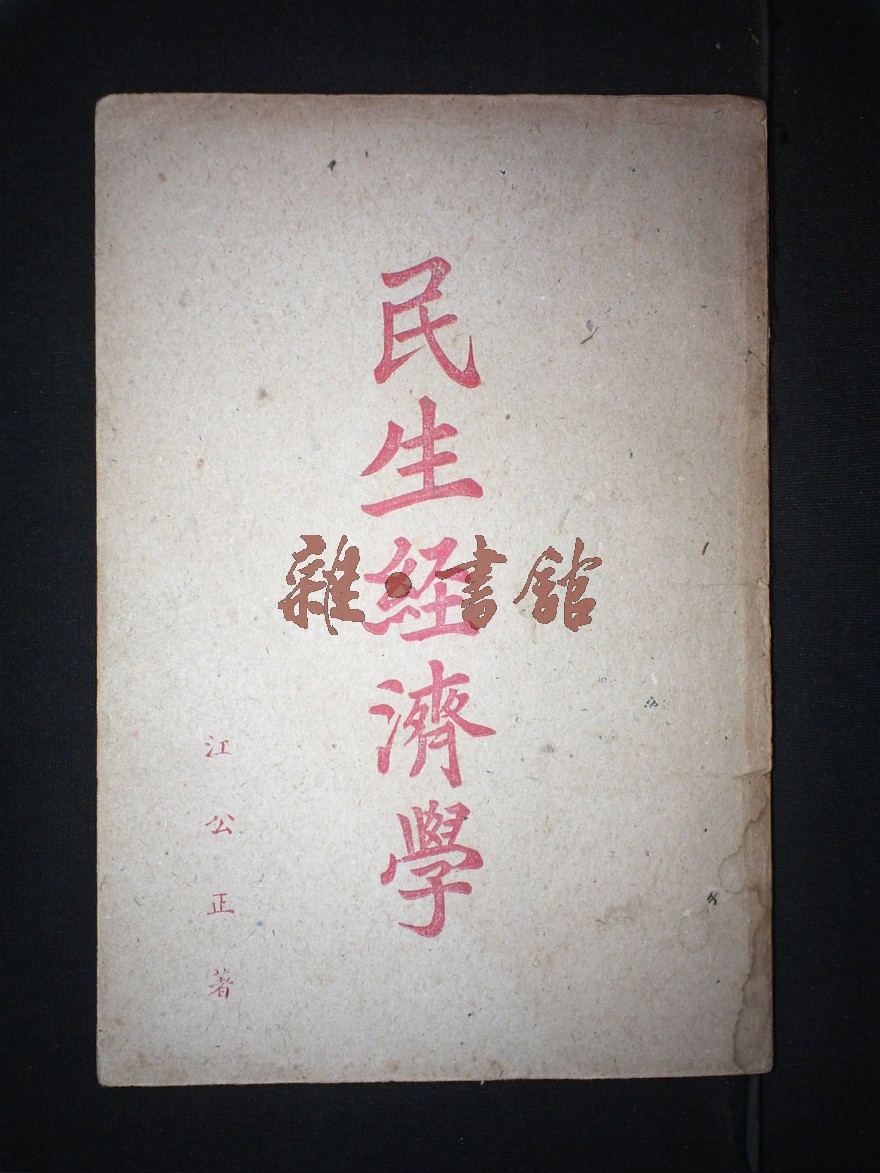 民生經濟學
江公正著
雜·書館